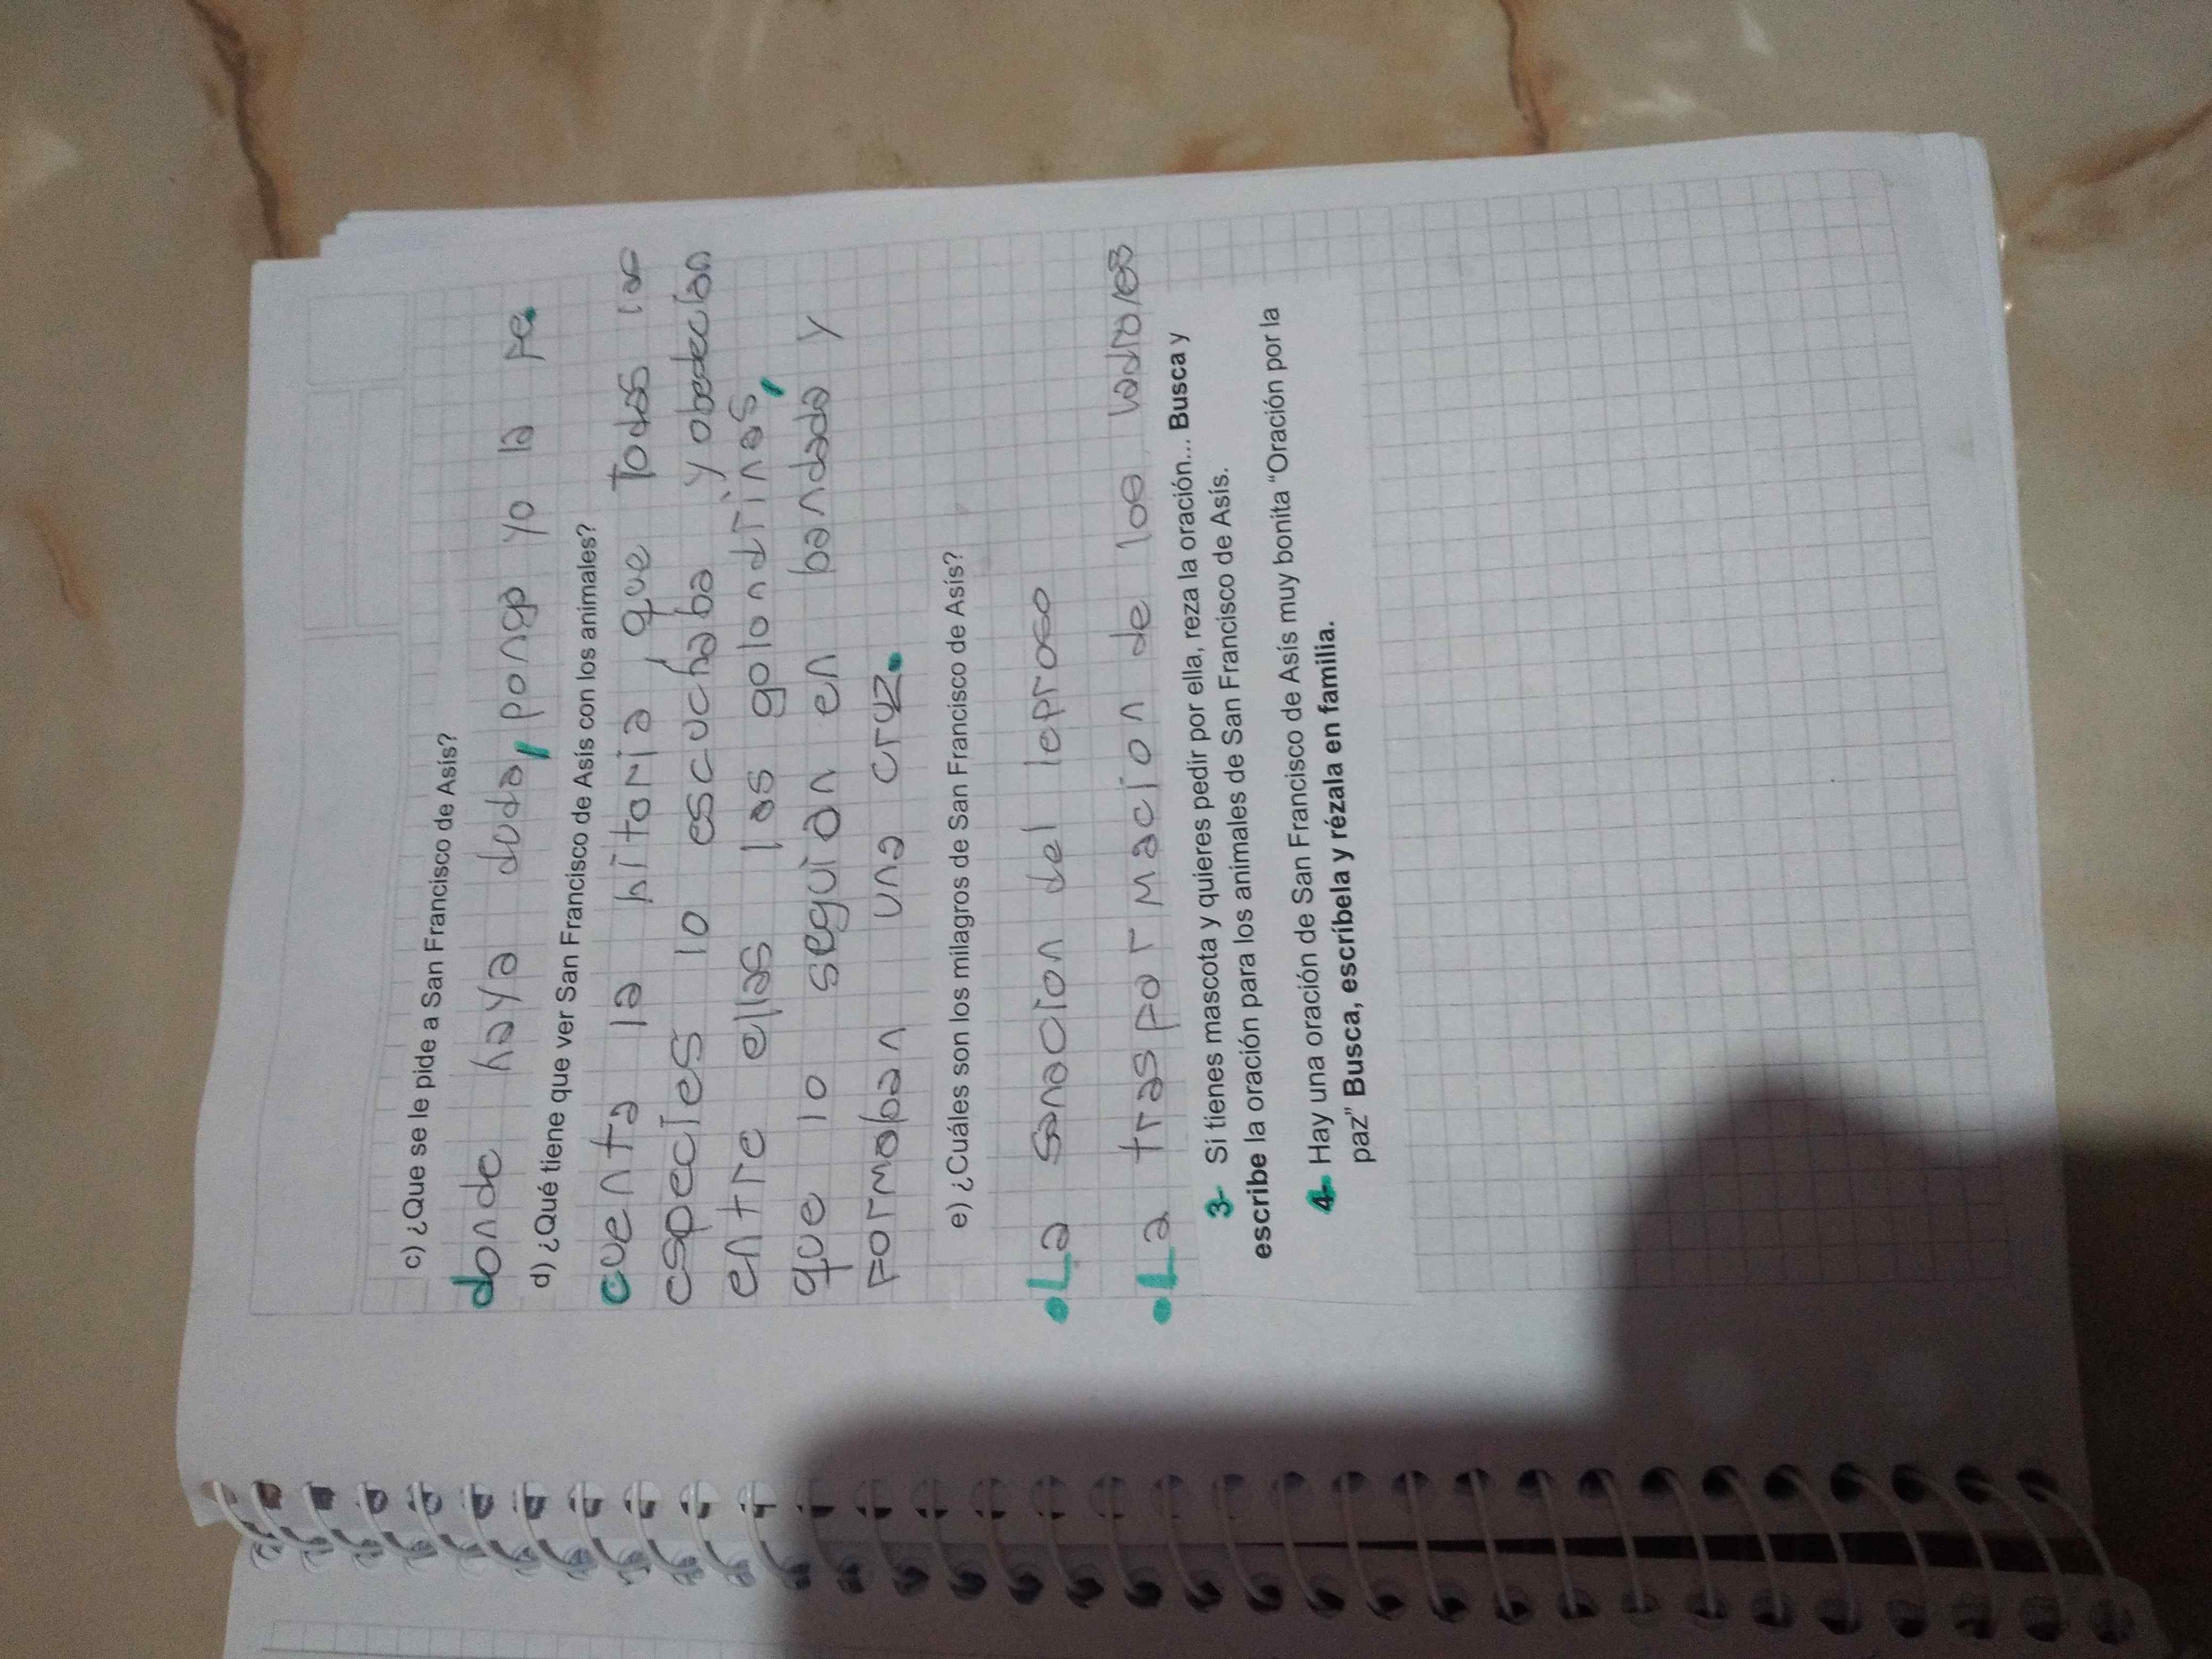 c) ¿Que se le pide a San Francisco de Asís?
donde haya duda, pongo yo la Fe.
d) ¿Qué tiene que ver San Francisco de Asís con los animales?
cuenta la hitoria, que Todas las
especies lo escuchaba y obedecian
entre ellas las golondrinas,
que lo seguian en bandada y
Formaban una cruz.
e) ¿Cuáles son los milagros de San Francisco de Asís?
• La sanacion del leproso
• La trasFormacion de los ladrores
3- Si tienes mascota y quieres pedir por ella, reza la oración... Busca y
escribe la oración para los animales de San Francisco de Asís.
4- Hay una oración de San Francisco de Asís muy bonita “Oración por la
paz” Busca, escríbela y rézala en familia.